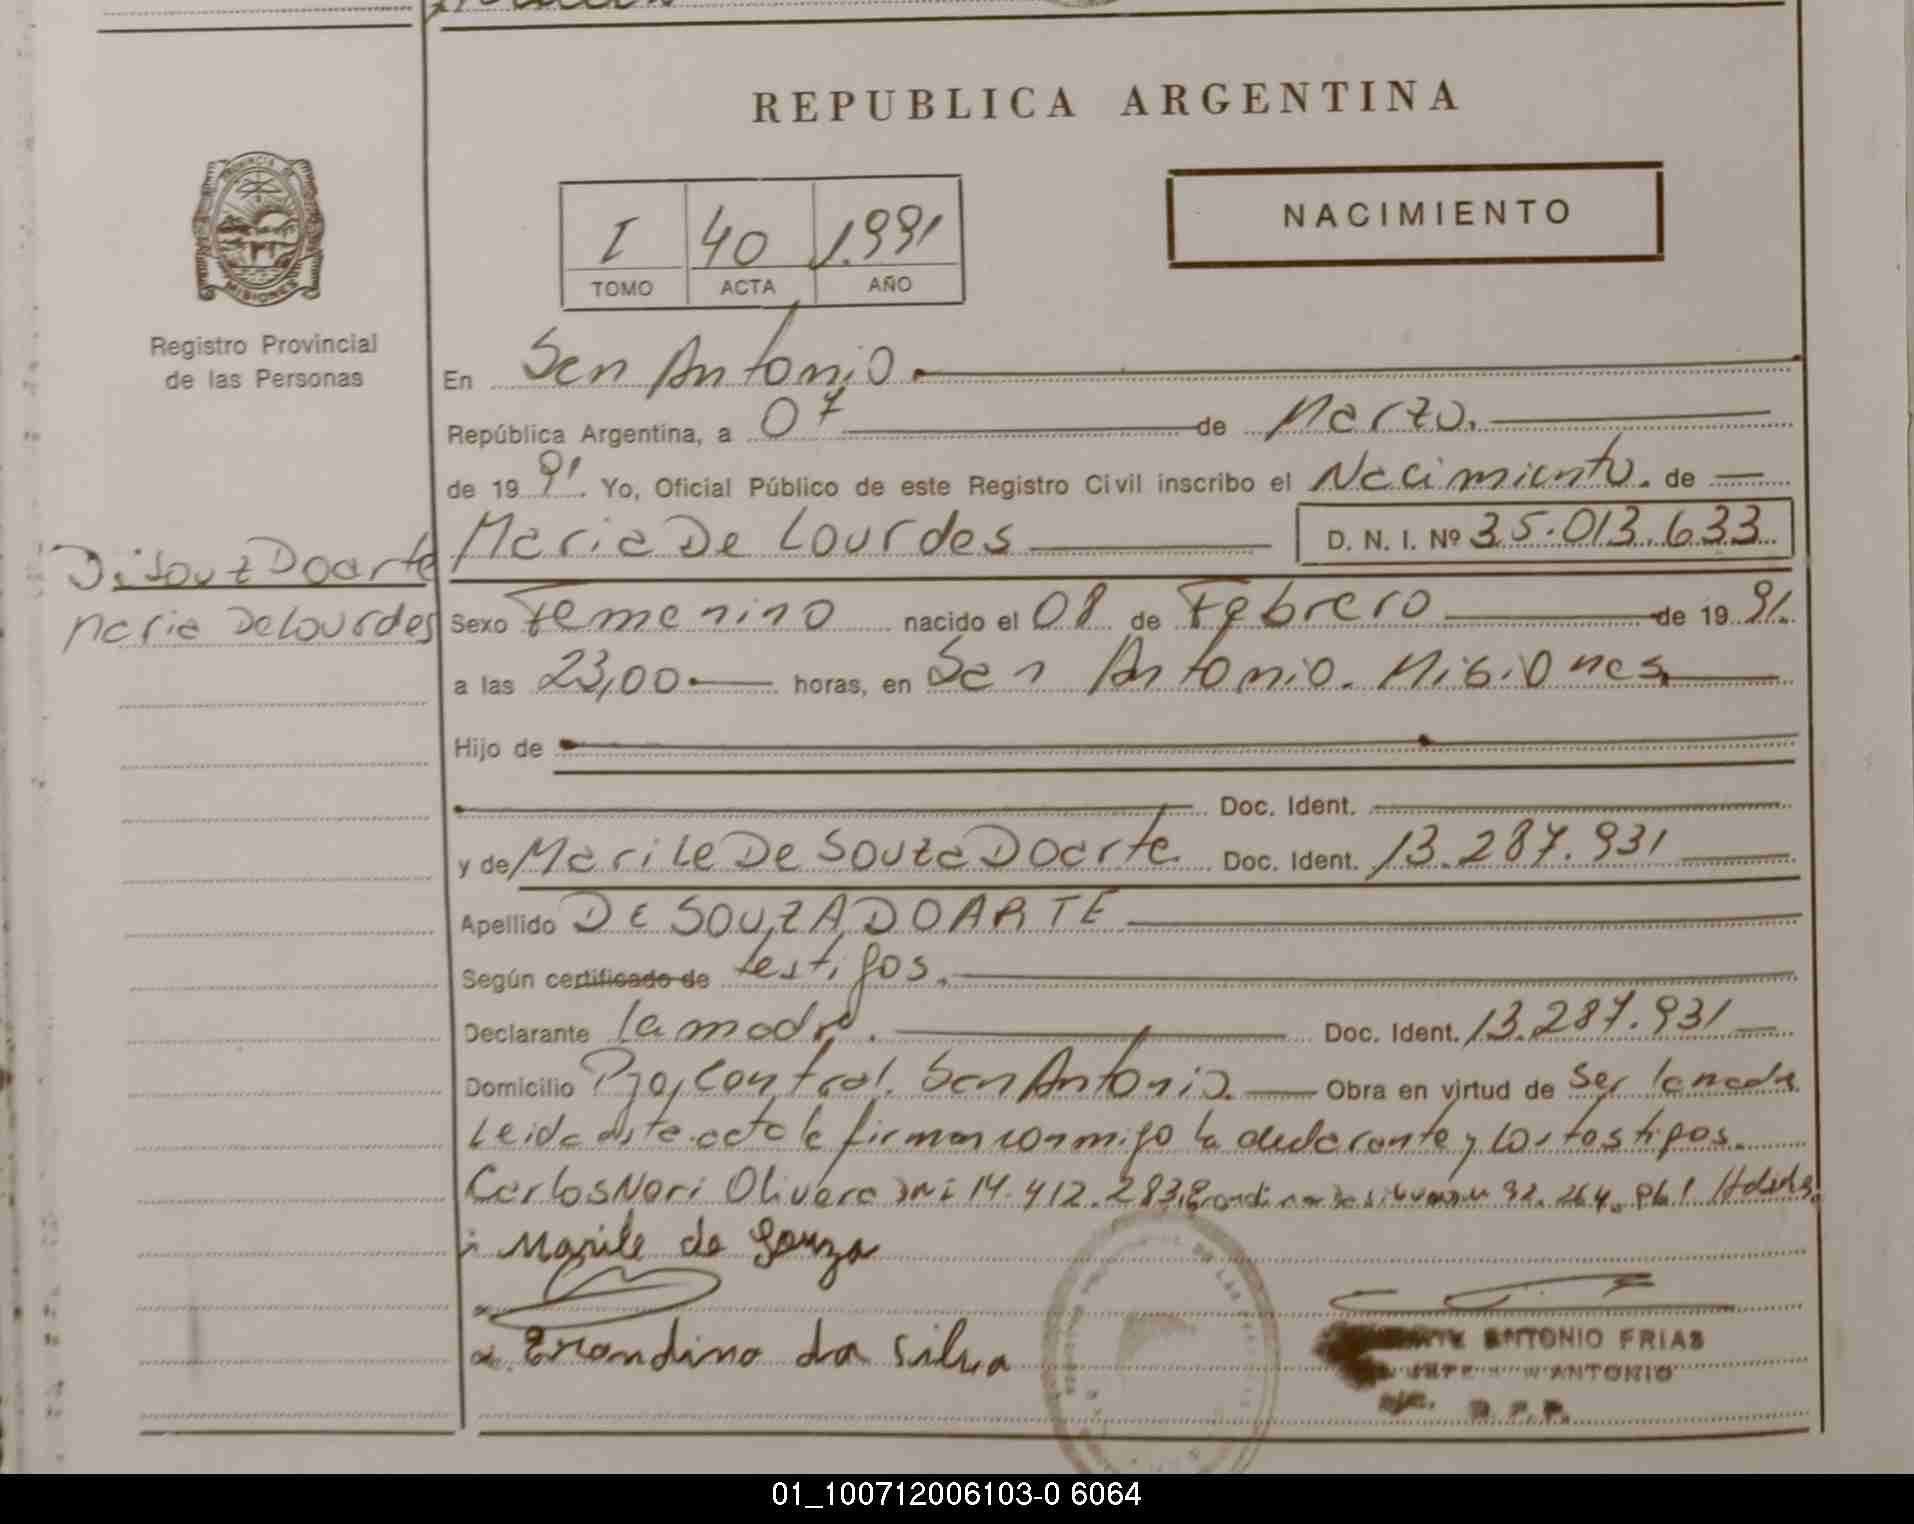 REPUBLICA ARGENTINA
PROVINCIA DE
MISIONES
Registro Provincial
de las Personas
I 40 1.991
TOMO ACTA AÑO
NACIMIENTO
En San Antonio.
República Argentina, a 07 de Marzo.
de 1991. Yo, Oficial Público de este Registro Civil inscribo el Nacimiento. de
Maria De Lourdes D. N. I. Nº 35.013.633
Doarte
Maria De Lourdes
Sexo Femenino nacido el 08 de Febrero de 1991.
a las 23,00 horas, en San Antonio. Misiones
Hijo de
Doc. Ident.
y de Marile De Souza Doarte. Doc. Ident. 13.287.931
Apellido DE SOUZA DOARTE
Según certificado de testigos.
Declarante la madre. Doc. Ident. 13.287.931
Domicilio Control. San Antonio. Obra en virtud de ser la madre
Leida este acta la firman conmigo la declarante y los testigos.
Carlos Nori Olivera DNI 14.412.283,
Marile de Souza
Erondino da Silva
ANTONIO FRIAS
ANTONIO
R. P. P.
01_100712006103-0 6064